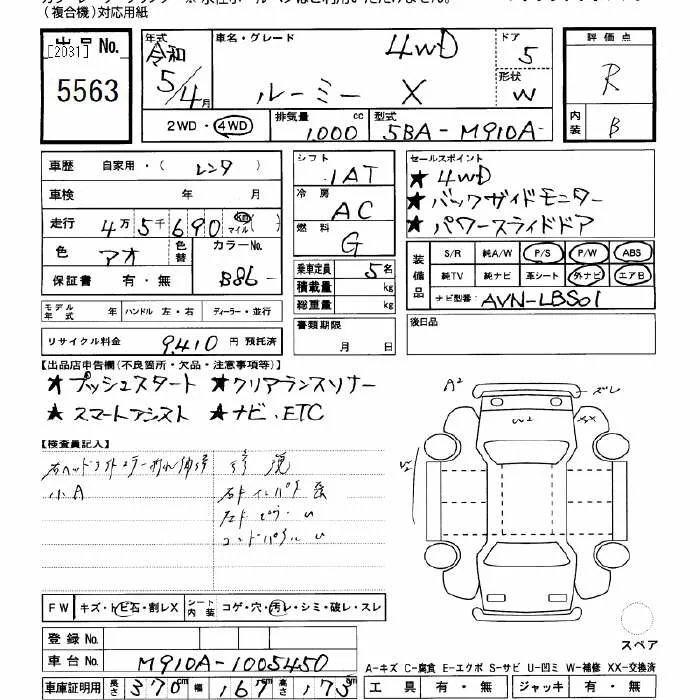 (複合機)対応用紙
出品No.
[2031]
5563
年式 令和 5/4月
車名・グレード 4WD
ルーミー X
ドア 5
形状 W
評価点 R
内装 B
2WD・4WD
排気量 1000 cc
型式 5BA-M910A-
車歴 自家用・(レンタ)
車検 年 月
走行 4万5千690 km マイル( )
色 アオ 色替 カラーNo. B86-
保証書 有・無
シフト IAT
冷房 AC
燃料 G
乗車定員 5名
積載量 kg
総重量 kg
セールスポイント
★4WD
★バックサイドモニター
★パワースライドドア
装備品 S/R 純A/W P/S P/W ABS
純TV 純ナビ 革シート 外ナビ エアB
ナビ型番: AVN-LBS01
モデル年式 年 ハンドル 左・右 ディーラー・並行
リサイクル料金 9,410 円 預託済
書類期限 月 日
後日品
【出品店申告欄(不良箇所・欠品・注意事項等)】
★プッシュスタート ★クリアランスソナー
★スマートアシスト ★ナビ、ETC
【検査員記入】
小A
A2
ズレ
W2
XX
FW キズ・トビ石・割レX シート内装 コゲ・穴・汚レ・シミ・破レ・スレ
登録No.
車台No. M910A-1005450
車庫証明用 長さ 370cm 幅 167cm 高さ 173cm
スペア
A-キズ C-腐食 E-エクボ S-サビ U-凹ミ W-補修 XX-交換済
工具 有・無 ジャッキ 有・無